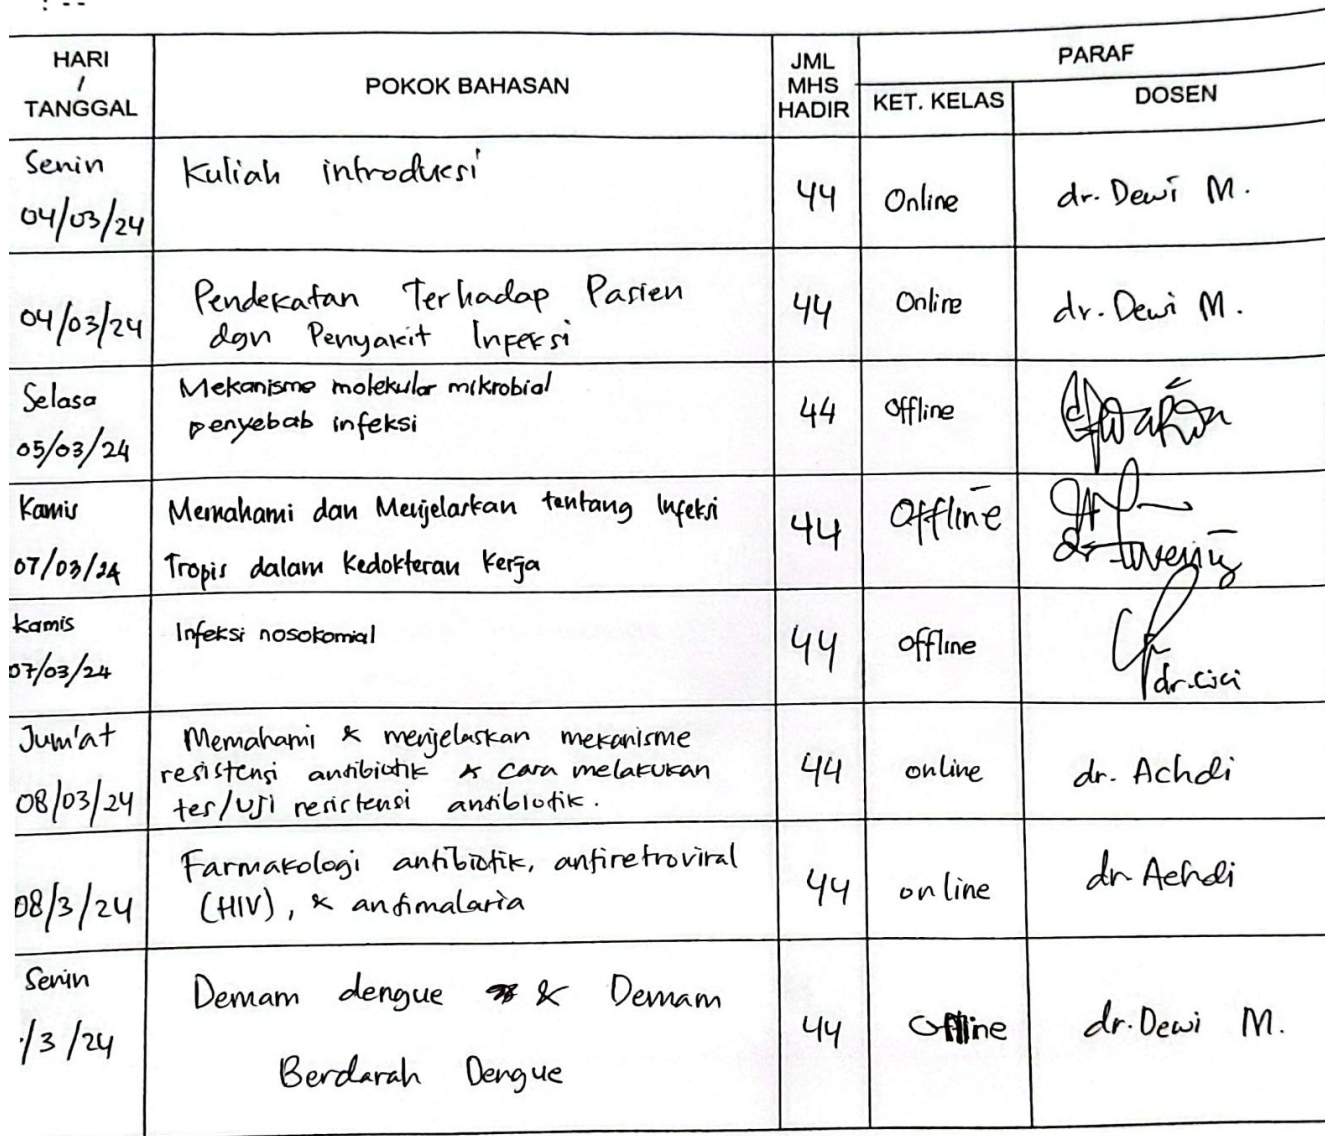 HARI
/
TANGGAL
POKOK BAHASAN
JML
MHS
HADIR
PARAF
KET. KELAS
DOSEN
Senin
04/03/24
Kuliah introduksi
44
Online
dr. Dewi M.
04/03/24
Pendekatan Terhadap Pasien
dgn Penyakit Infeksi
44
Online
dr. Dewi M.
Selasa
05/03/24
Mekanisme molekular mikrobial
penyebab infeksi
44
Offline
Kamis
07/03/24
Memahami dan Menjelaskan tentang Infeksi
Tropis dalam Kedokteran Kerja
44
Offline
Kamis
07/03/24
Infeksi nosokomial
44
offline
dr. Cici
Jum'at
08/03/24
Memahami & menjelaskan mekanisme
resistensi antibiotik & cara melakukan
tes/uji resistensi antibiotik.
44
online
dr. Achdi
08/3/24
Farmakologi antibiotik, antiretroviral
(HIV), & antimalaria
44
online
dr Achdi
Senin
/3/24
Demam dengue & Demam
Berdarah Dengue
44
Offline
dr. Dewi M.